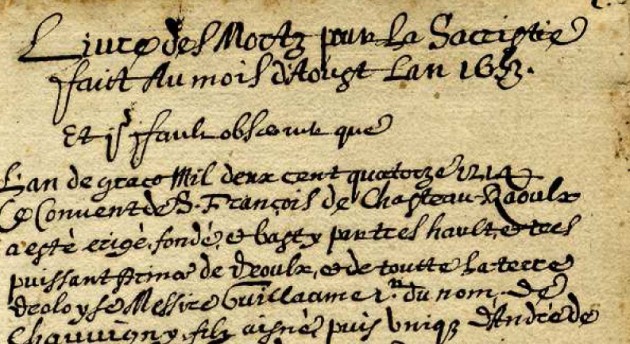 Livre des Mortz pour La Sacristie
faict Au mois d'Aougt Lan 1653.
Et il fault observer que
L'an de grace Mil deux cent quatorze 1214
Ce Convent de S. François de Chasteau-Raoulx
a esté erigé, fondé, & basty par tres hault, & tres
puissant Prince de Deoulx, & de toutte La terre
Deoloyse Messire Guillaume 1.er du nom, de
Chauvigny, filz aisné, puis Unique d'André de